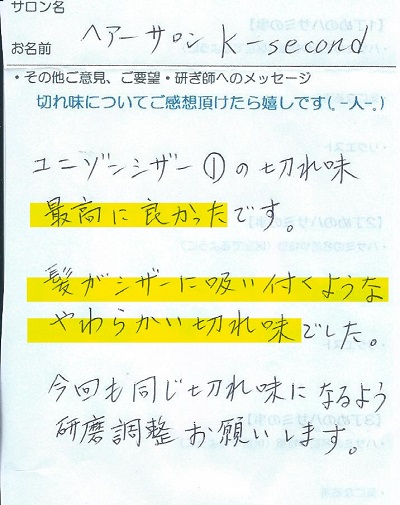 サロン名
お名前
ヘアーサロン K-second
・その他ご意見、ご要望・研ぎ師へのメッセージ
切れ味についてご感想頂けたら嬉しです(｡-人-｡)
ユニゾンシザー①の切れ味
最高に良かったです。
髪がシザーに吸い付くような
やわらかい切れ味でした。
今回も同じ切れ味になるよう
研磨調整お願いします。